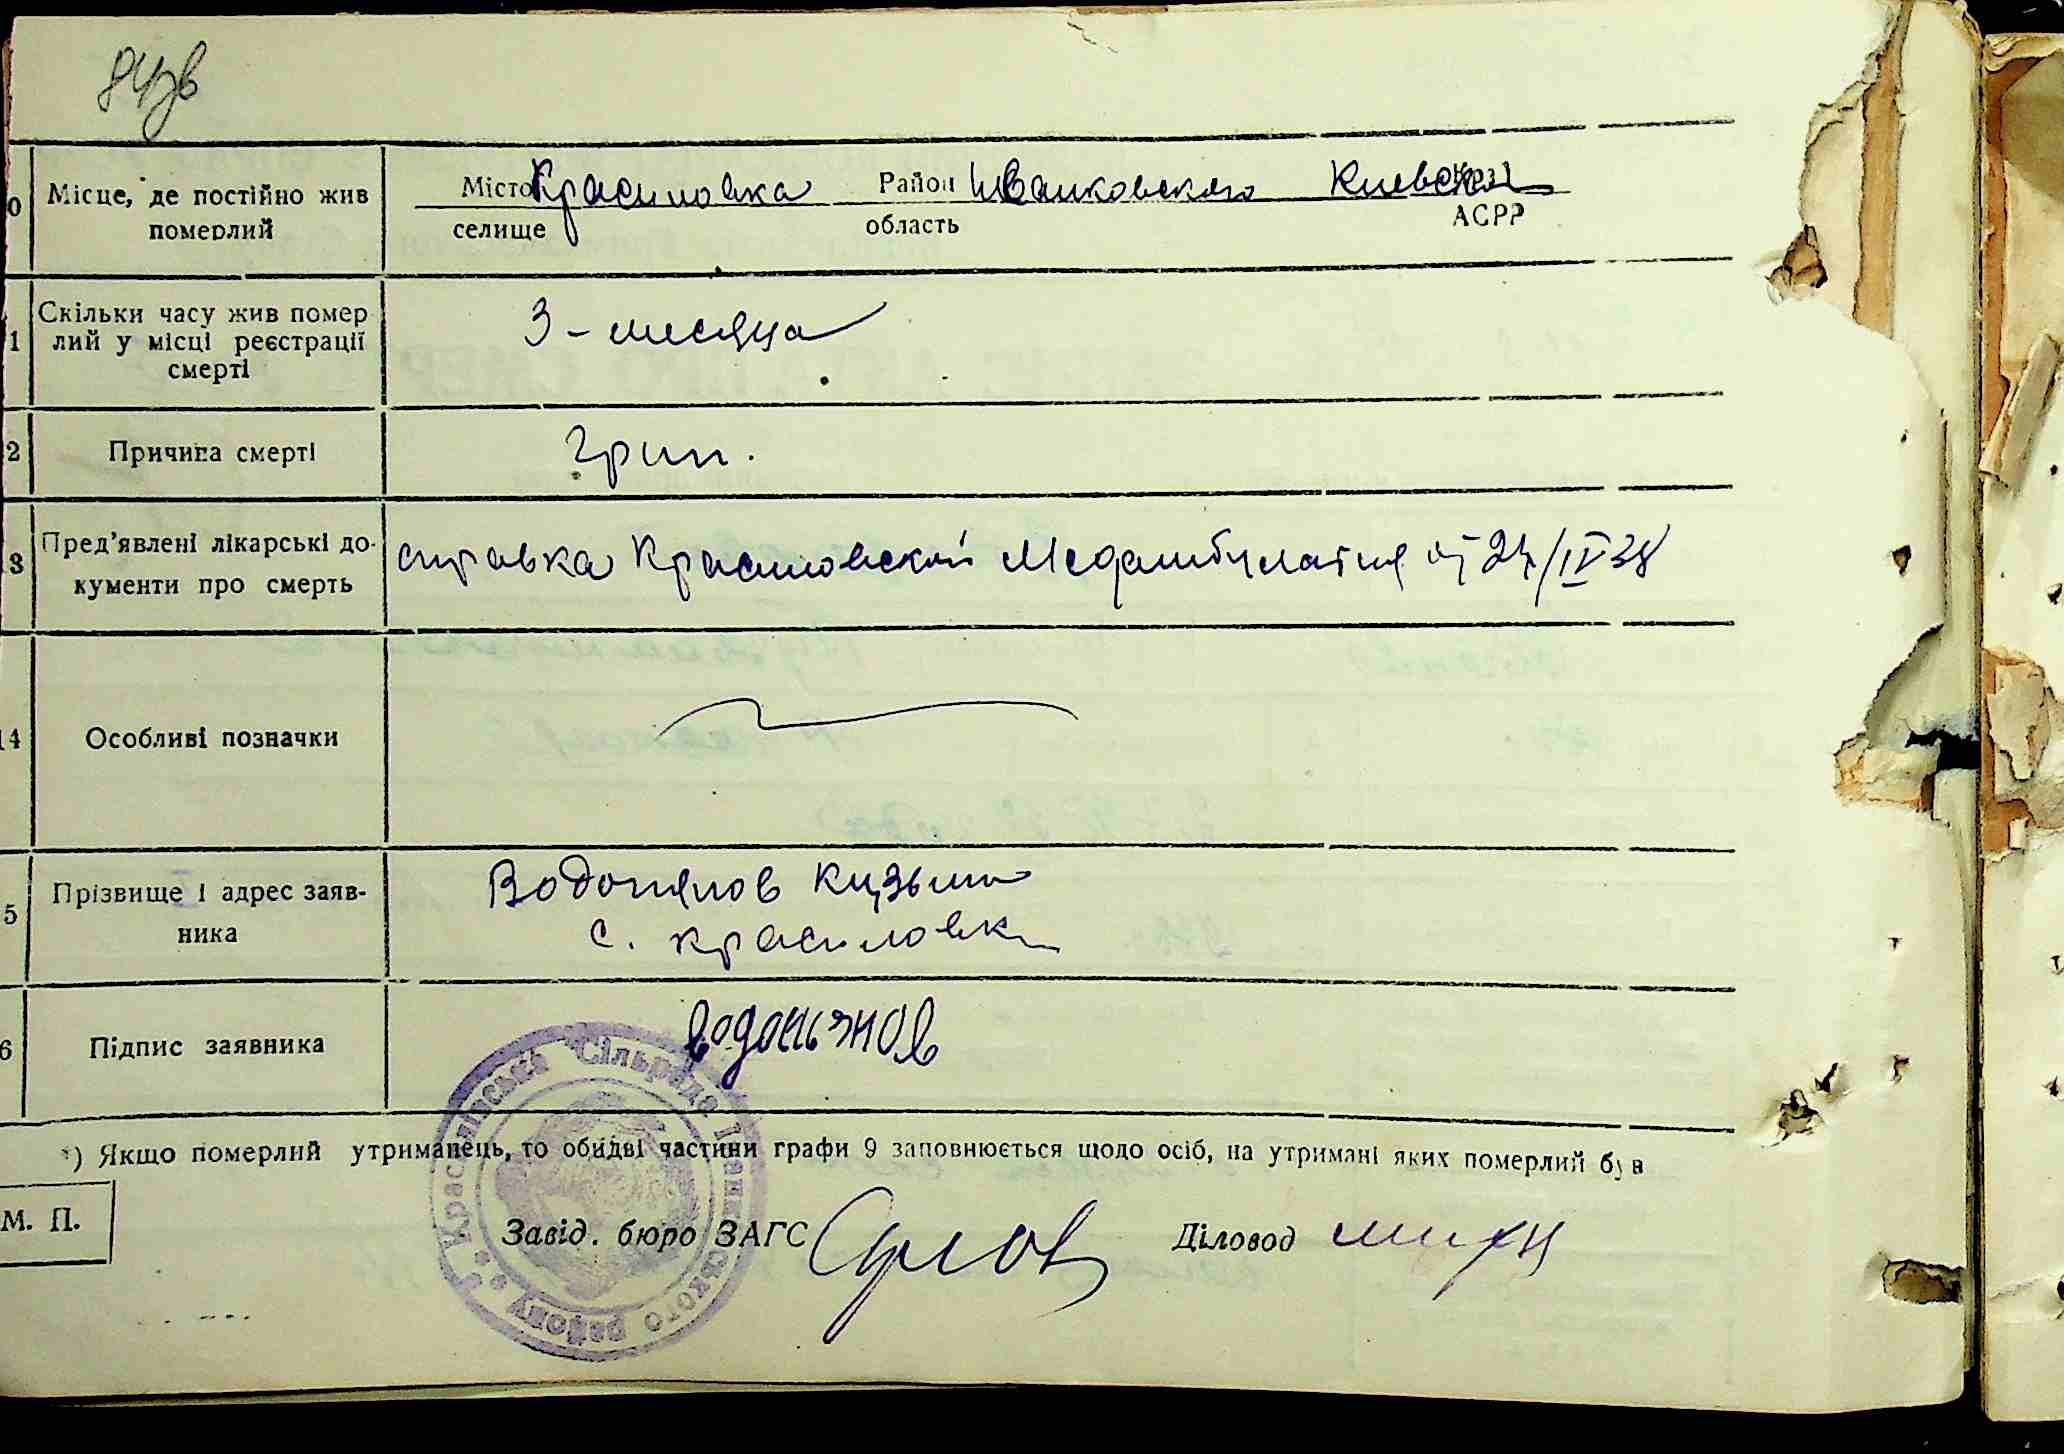 84зв
0 Місце, де постійно жив померлий
Місто Красиловка Район Иванковского Киевской
селище область АСРР
1 Скільки часу жив помер
лий у місці реєстрації
смерті
3 - месяца
2 Причина смерті
Грип.
3 Пред'явлені лікарські до-
кументи про смерть
справка Красиловской Медамбулатия от 24/IV 38
14 Особливі позначки
5 Прізвище і адрес заяв-
ника
Водопянов Кузьма
с. Красиловка
6 Підпис заявника
Водопьянов
*) Якщо померлий утриманець, то обидві частини графи 9 заповнюється щодо осіб, на утримані яких померлий був
М. П.
Завід. бюро ЗАГС Діловод
Красилівська Сільрада Іванківського району